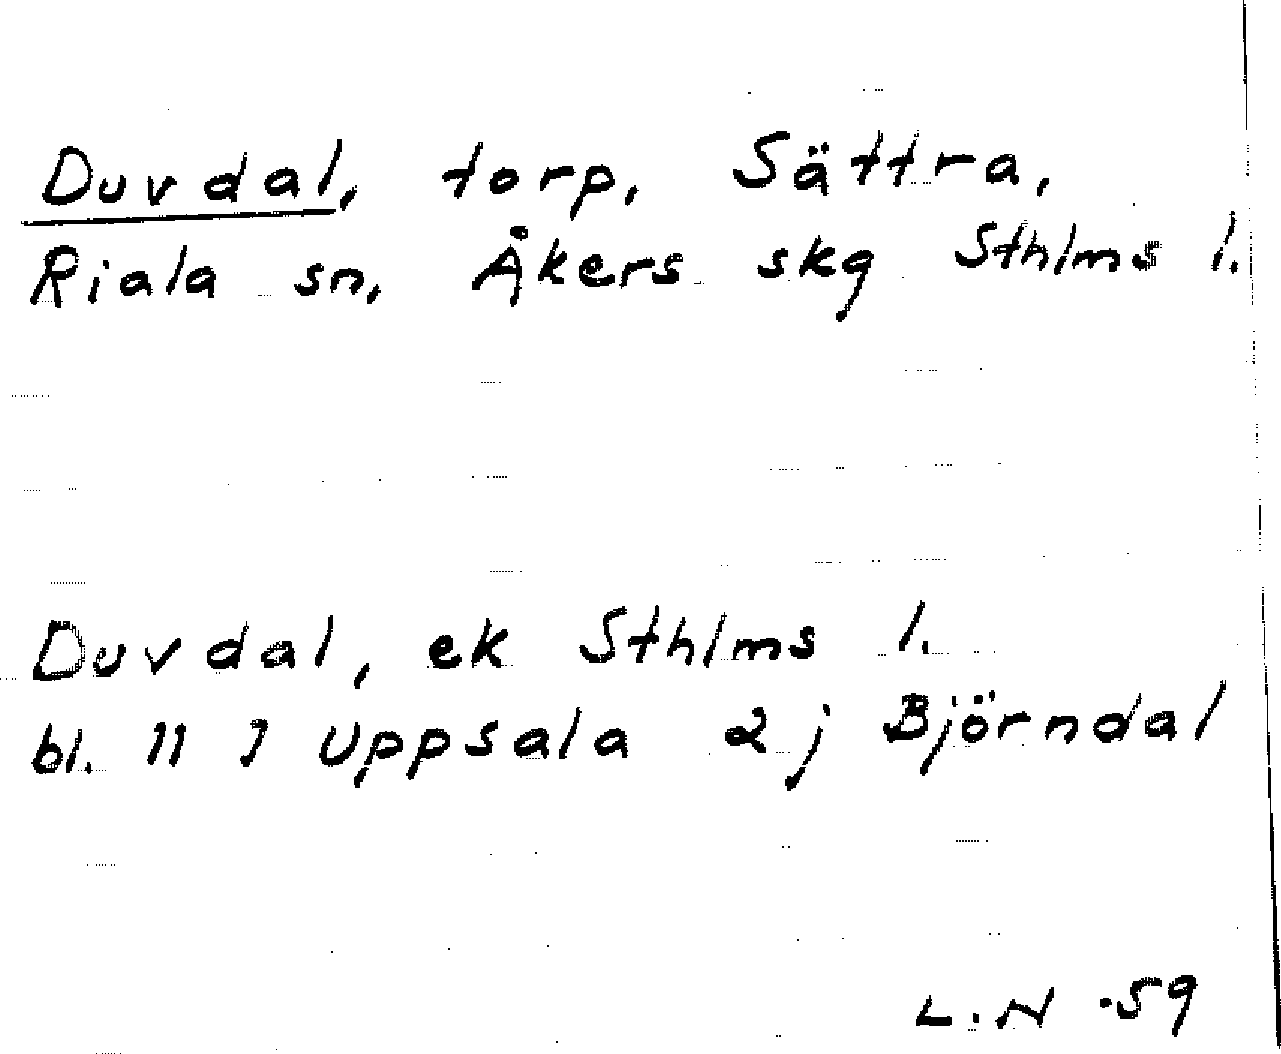 Duvdal, torp, Sättra,
Riala sn, Åkers skg Sthlms l.
Duvdal, ek Sthlms l.
bl. 11 I Uppsala 2 j Björndal
L.N -59